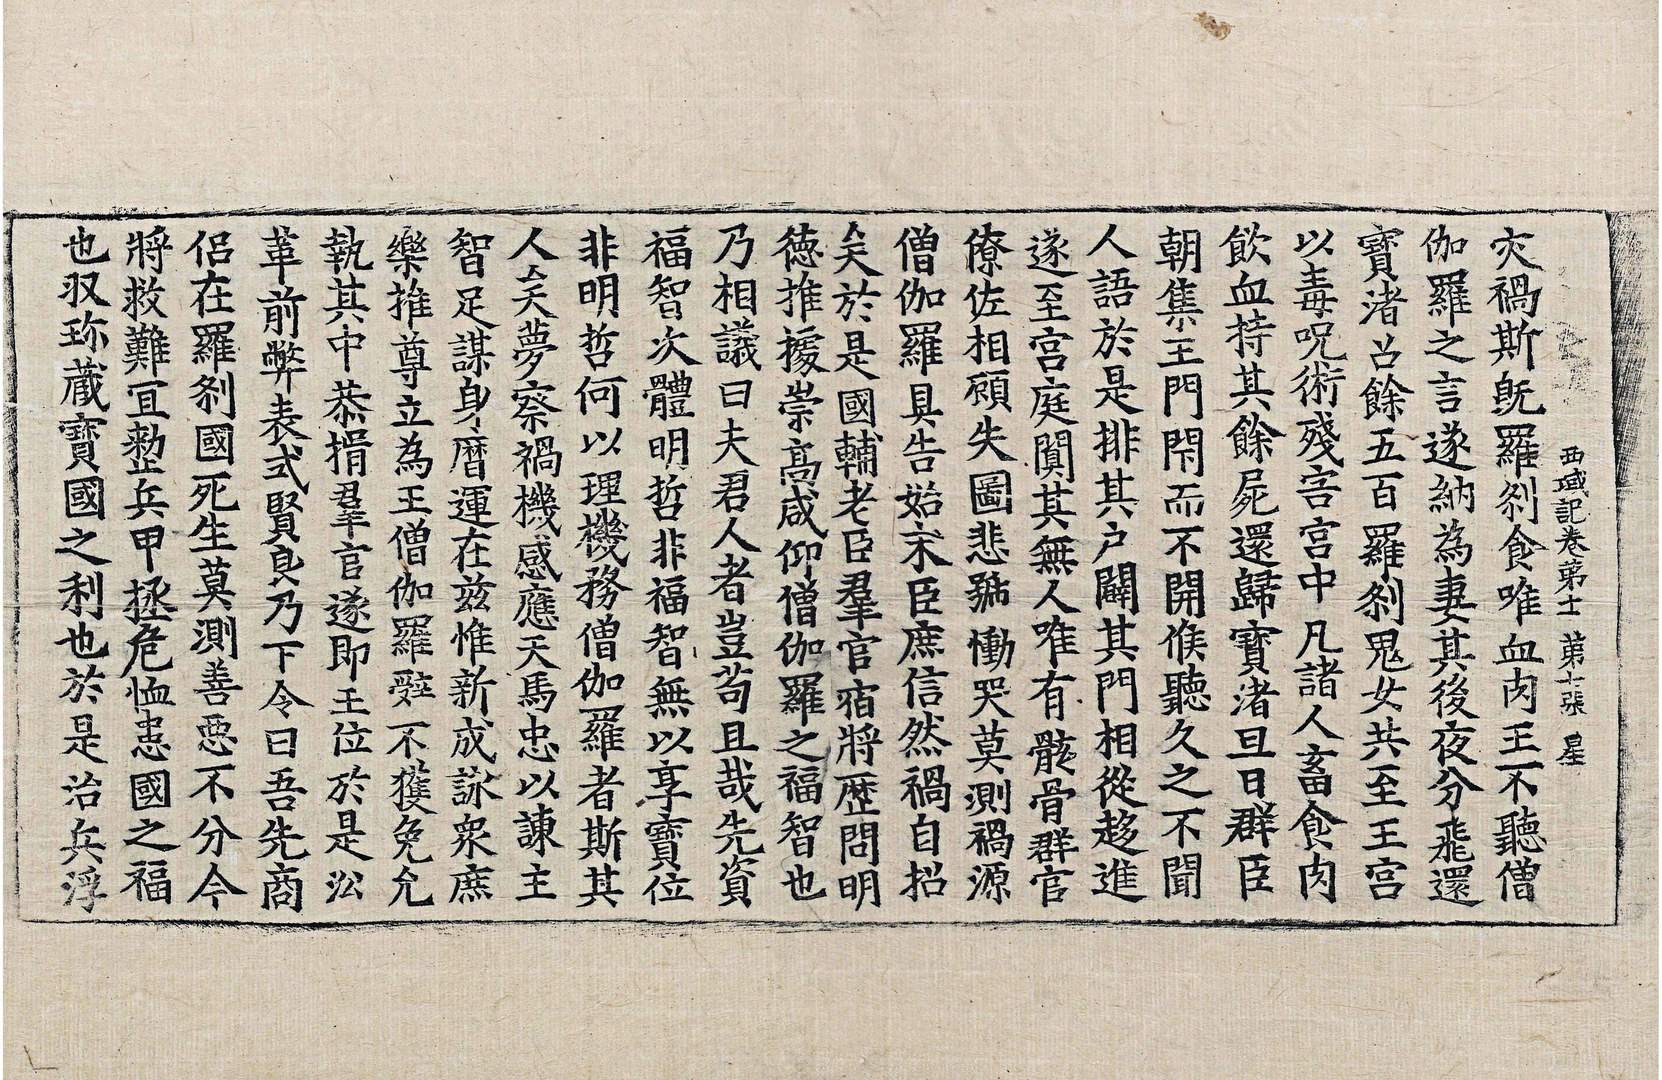 西域記卷第十一 第七張 星
灾禍斯旣羅刹食唯血肉王不聽僧
伽羅之言遂納為妻其後夜分飛還
寶渚召餘五百羅刹鬼女共至王宫
以毒呪術殘害宫中凡諸人畜食肉
飲血持其餘屍還歸寶渚旦日群臣
朝集王門閇而不開候聽久之不聞
人語於是排其户闢其門相從趍進
遂至宫庭闃其無人唯有骸骨群官
僚佐相顧失圖悲號慟哭莫測禍源
僧伽羅具告始末臣庶信然禍自招
矣於是國輔老臣羣官宿將歷問明
德推據崇高咸仰僧伽羅之福智也
乃相議曰夫君人者豈苟且哉先資
福智次體明哲非福智無以享寶位
非明哲何以理機務僧伽羅者斯其
人矣夢察禍機感應天馬忠以諫主
智足謀身曆運在兹惟新成詠衆庶
樂推尊立為王僧伽羅辝不獲免允
執其中恭揖羣官遂即王位於是㳂
革前弊表式賢良乃下令曰吾先商
侣在羅刹國死生莫測善惡不分今
將救難宜勑兵甲拯危恤患國之福
也収珎藏寶國之利也於是治兵浮